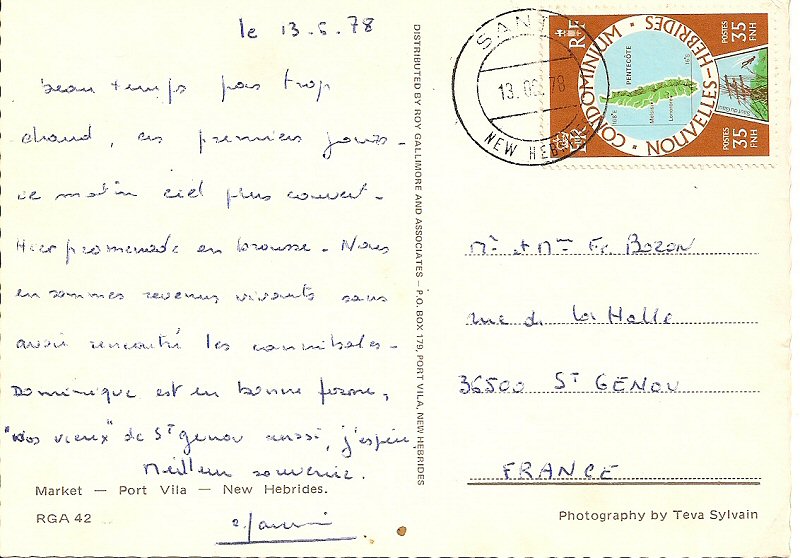 le 13.5.78
Beau temps pas trop
chaud, ces premiers jours-
ce matin ciel plus couvert-
Hier promenade en brousse - Nous
en sommes revenus vivants sans
avoir rencontré les cannibales-
Dominique est en bonne forme,
"nos vieux" de St genou aussi, j'espère.
Meilleur souvenir.
Market — Port Vila — New Hebrides.
RGA 42
DISTRIBUTED BY ROY GALLIMORE AND ASSOCIATES — P.O. BOX 179, PORT VILA, NEW HEBRIDES
SANTO
NEW HEBRIDES
CONDOMINIUM
NOUVELLES-HEBRIDES
PENTECÔTE
RF
POSTES
35
FNH
POSTES
35
FNH
Mr et Mme Fr. Bozon
rue de la Halle
36500 St GENOU
FRANCE
Photography by Teva Sylvain